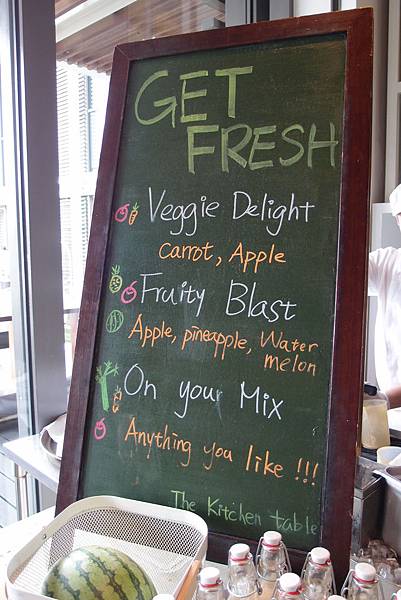 GET
FRESH
Veggie Delight
carrot, Apple
Fruity Blast
Apple, pineapple, Water
melon
On your Mix
Anything you like !!!
The Kitchen table